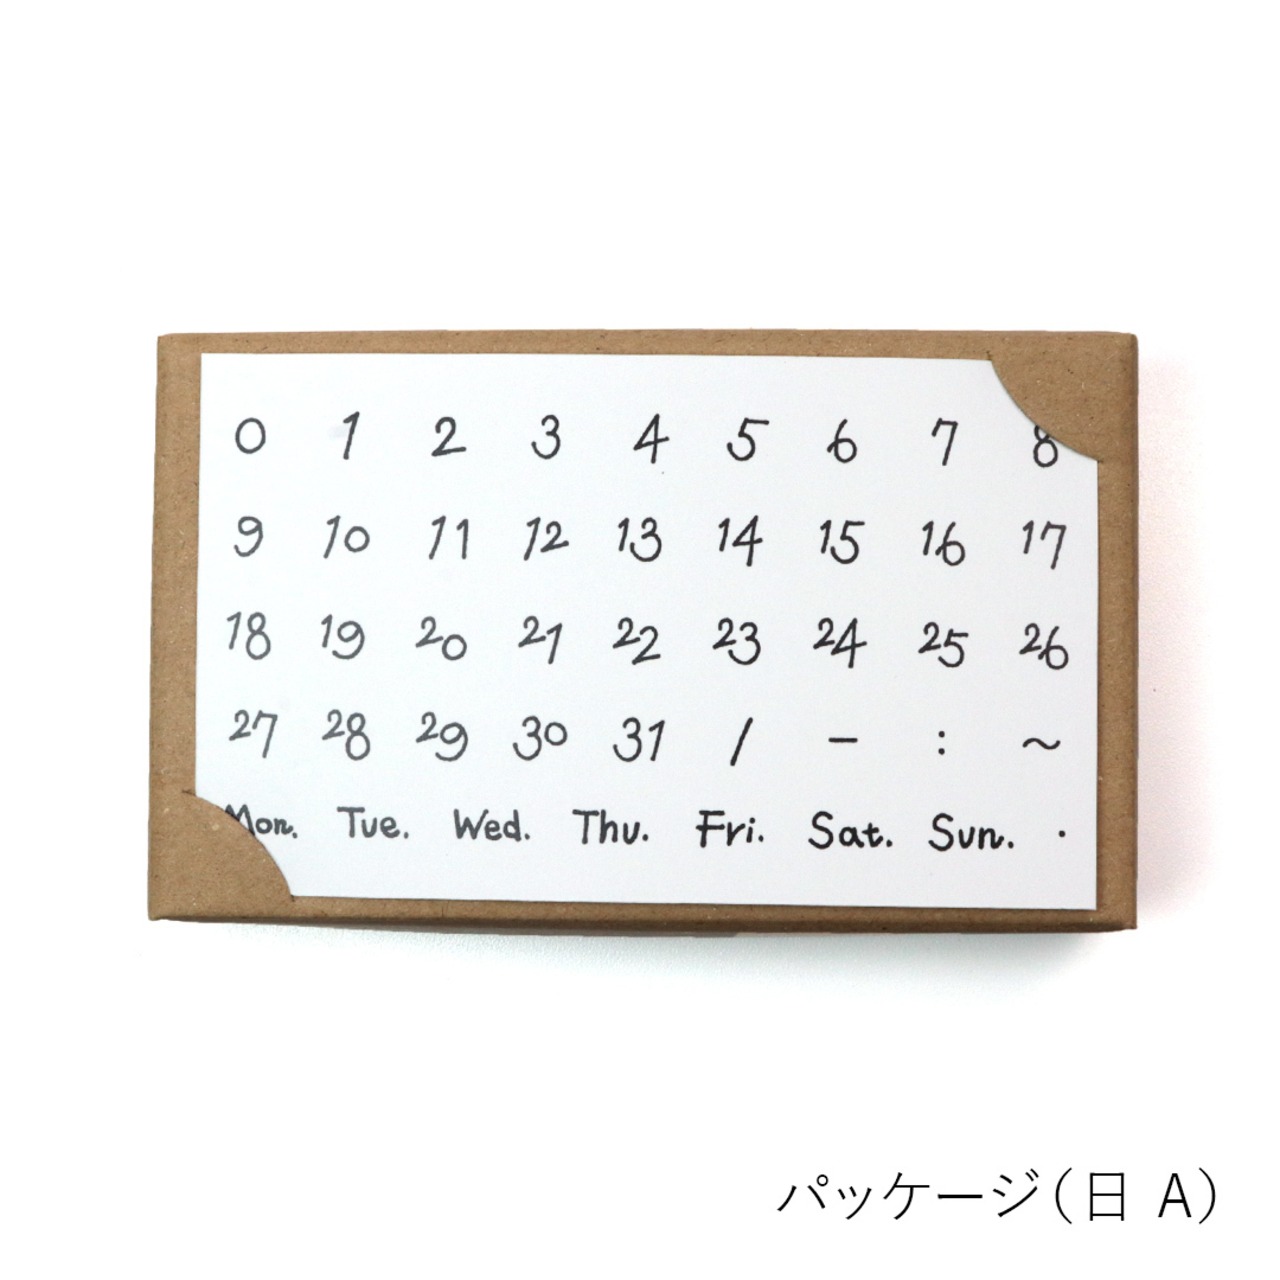 0 1 2 3 4 5 6 7 8
9 10 11 12 13 14 15 16 17
18 19 20 21 22 23 24 25 26
27 28 29 30 31 / - : ~
Mon. Tue. Wed. Thu. Fri. Sat. Sun. ·
パッケージ(日 A)